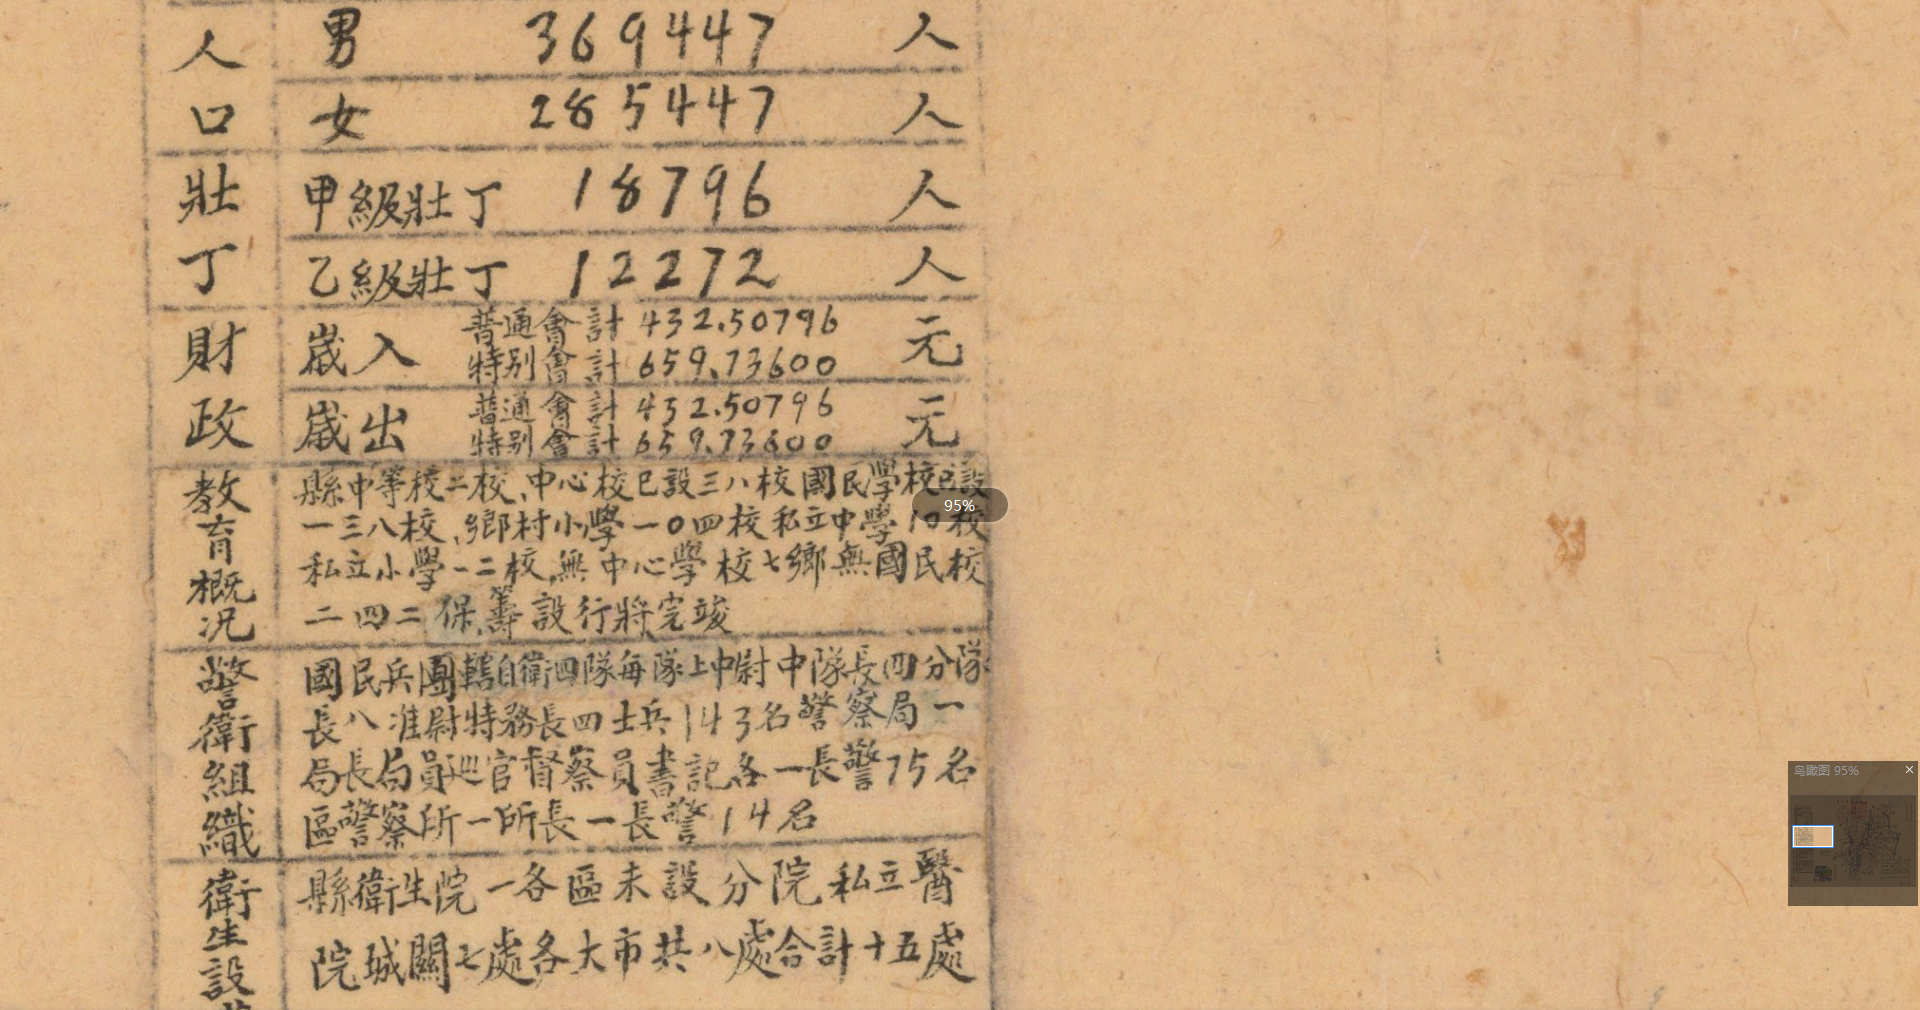 人口 男 369447 人
女 285447 人
壯丁 甲級壯丁 18796 人
乙級壯丁 12272 人
財政 歲入 普通會計 432.50796 元
特別會計 659.73600
歲出 普通會計 432.50796 元
特別會計 659.73600
教育概況 縣中等校二校、中心校已設三八校國民學校已設
一三八校、鄉村小學一0四校私立中學10校
私立小學一二校,無中心學校七鄉無國民校
二四二保,籌設行將完竣
警衛組織 國民兵團轄自衛四隊每隊上中尉中隊長四分隊
長八准尉特務長四士兵143名警察局一
局長局員巡官督察員書記各一長警75名
區警察所一所長一長警14名
衛生設 縣衛生院一各區未設分院私立醫
院城關七處各大市共八處合計十五處
95%
鸟瞰图 95%